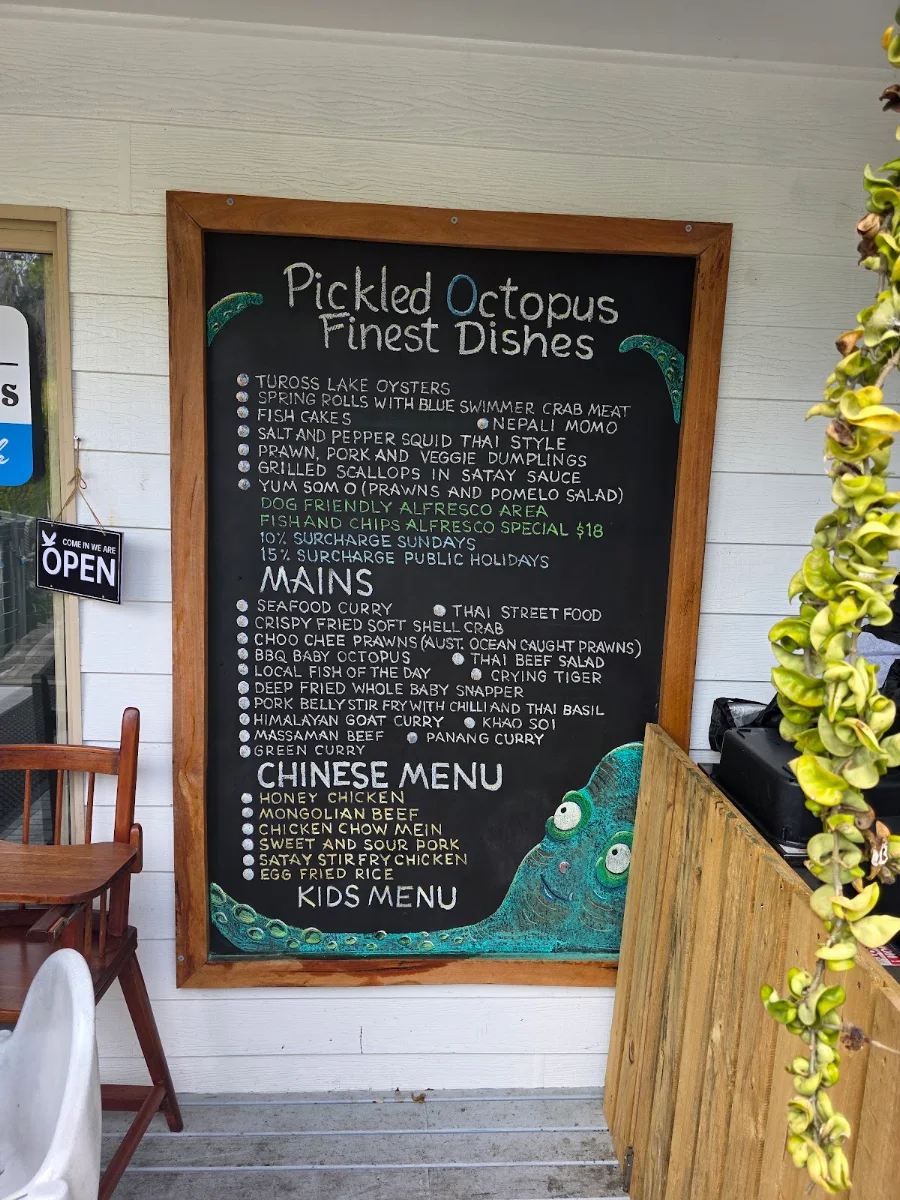 Pickled Octopus
Finest Dishes
TUROSS LAKE OYSTERS
SPRING ROLLS WITH BLUE SWIMMER CRAB MEAT
FISH CAKES NEPALI MOMO
SALT AND PEPPER SQUID THAI STYLE
PRAWN, PORK AND VEGGIE DUMPLINGS
GRILLED SCALLOPS IN SATAY SAUCE
YUM SOM O (PRAWNS AND POMELO SALAD)
DOG FRIENDLY ALFRESCO AREA
FISH AND CHIPS ALFRESCO SPECIAL $18
10% SURCHARGE SUNDAYS
15% SURCHARGE PUBLIC HOLIDAYS
MAINS
SEAFOOD CURRY THAI STREET FOOD
CRISPY FRIED SOFT SHELL CRAB
CHOO CHEE PRAWNS (AUST. OCEAN CAUGHT PRAWNS)
BBQ BABY OCTOPUS THAI BEEF SALAD
LOCAL FISH OF THE DAY CRYING TIGER
DEEP FRIED WHOLE BABY SNAPPER
PORK BELLY STIR FRY WITH CHILLI AND THAI BASIL
HIMALAYAN GOAT CURRY KHAO SOI
MASSAMAN BEEF PANANG CURRY
GREEN CURRY
CHINESE MENU
HONEY CHICKEN
MONGOLIAN BEEF
CHICKEN CHOW MEIN
SWEET AND SOUR PORK
SATAY STIR FRY CHICKEN
EGG FRIED RICE
KIDS MENU
COME IN WE ARE
OPEN